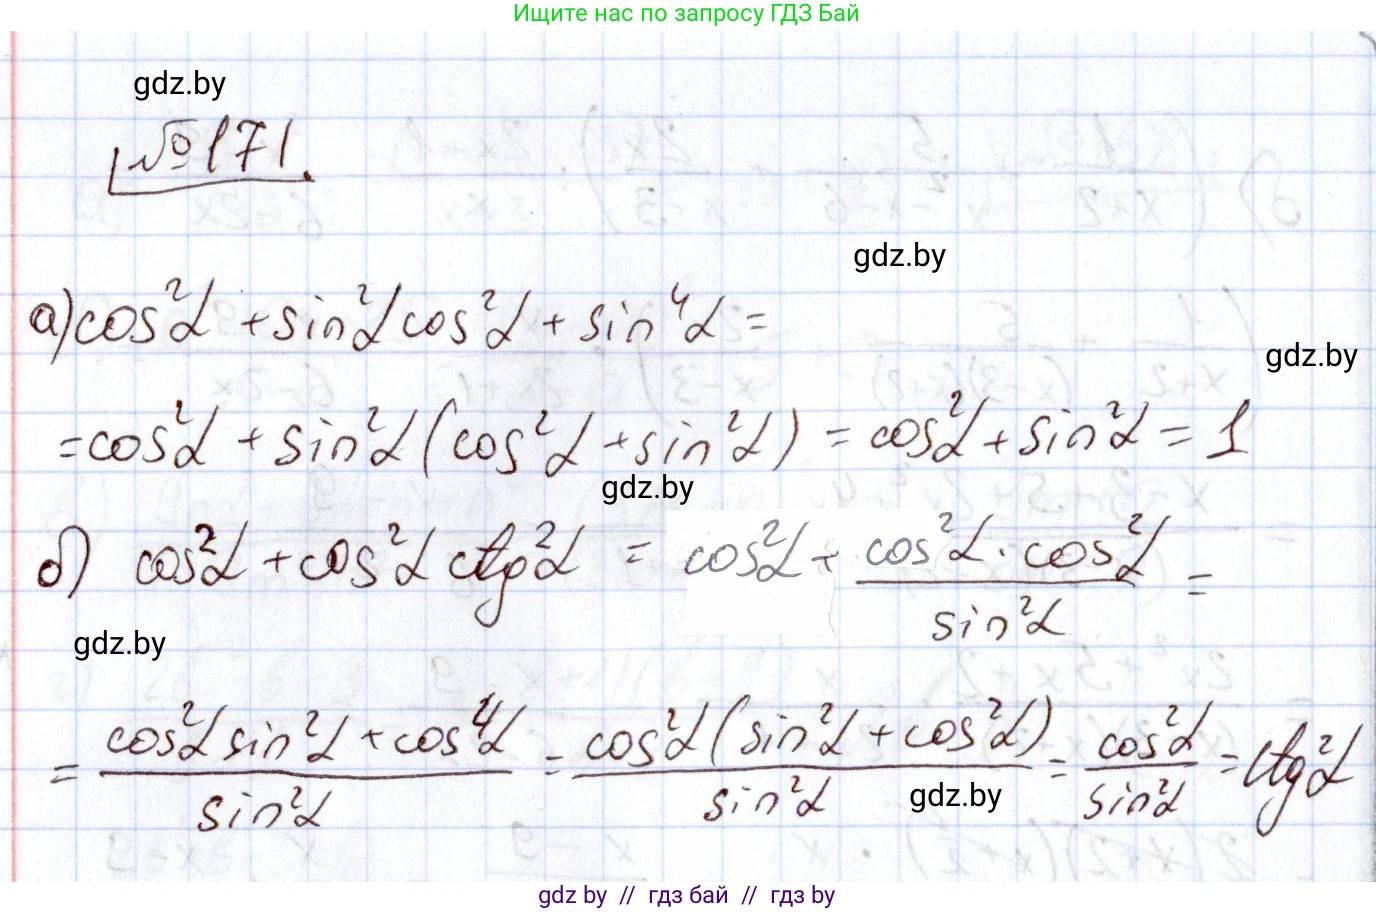 Ищите нас по запросу ГДЗ Бай
gdz.by
№171.
gdz.by
а) cos²α + sin²α cos²α + sin⁴α =
gdz.by
= cos²α + sin²α (cos²α + sin²α) = cos²α + sin²α = 1
gdz.by
б) cos²α + cos²α ctg²α = cos²α + (cos²α · cos²α)/(sin²α) =
gdz.by
= (cos²α sin²α + cos⁴α)/(sin²α) = (cos²α (sin²α + cos²α))/(sin²α) = (cos²α)/(sin²α) = ctg²α
gdz.by
gdz.by // гдз бай // гдз by